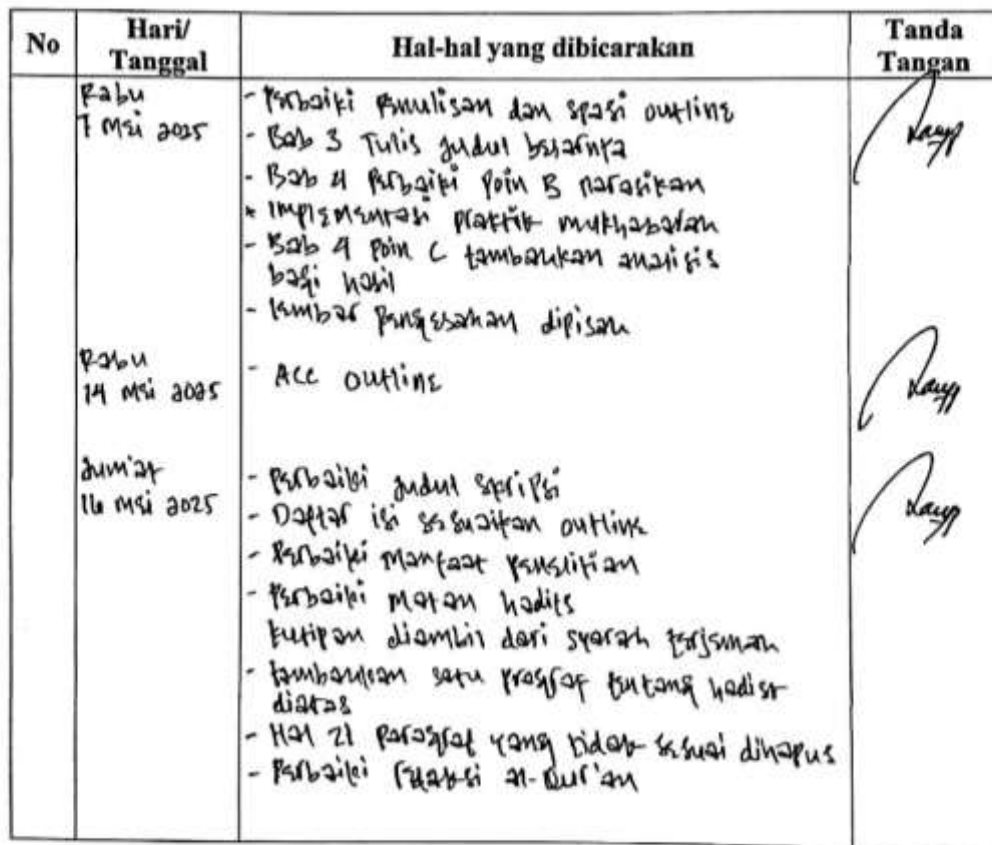 No
Hari/
Tanggal
Hal-hal yang dibicarakan
Tanda
Tangan
Rabu
7 Mei 2025
- Perbaiki Penulisan dan spasi outline
- Bab 3 Tulis judul besarnya
- Bab 4 Perbaiki Poin B narasikan
* Implementasi praktik mukhabarah
- Bab 4 Poin C tambahkan analisis
bagi hasil
- lembar Pengesahan dipisah
Rabu
14 Mei 2025
- ACC outline
Jum'at
16 Mei 2025
- Perbaiki judul skripsi
- Daftar isi sesuaikan outline
- Perbaiki Manfaat penelitian
- Perbaiki matan hadits
kutipan diambil dari syarah terjemah
- tambahkan satu pragraf tentang hadist
diatas
- Hal 21 Paragraf yang tidak sesuai dihapus
- Perbaiki al-Qur'an